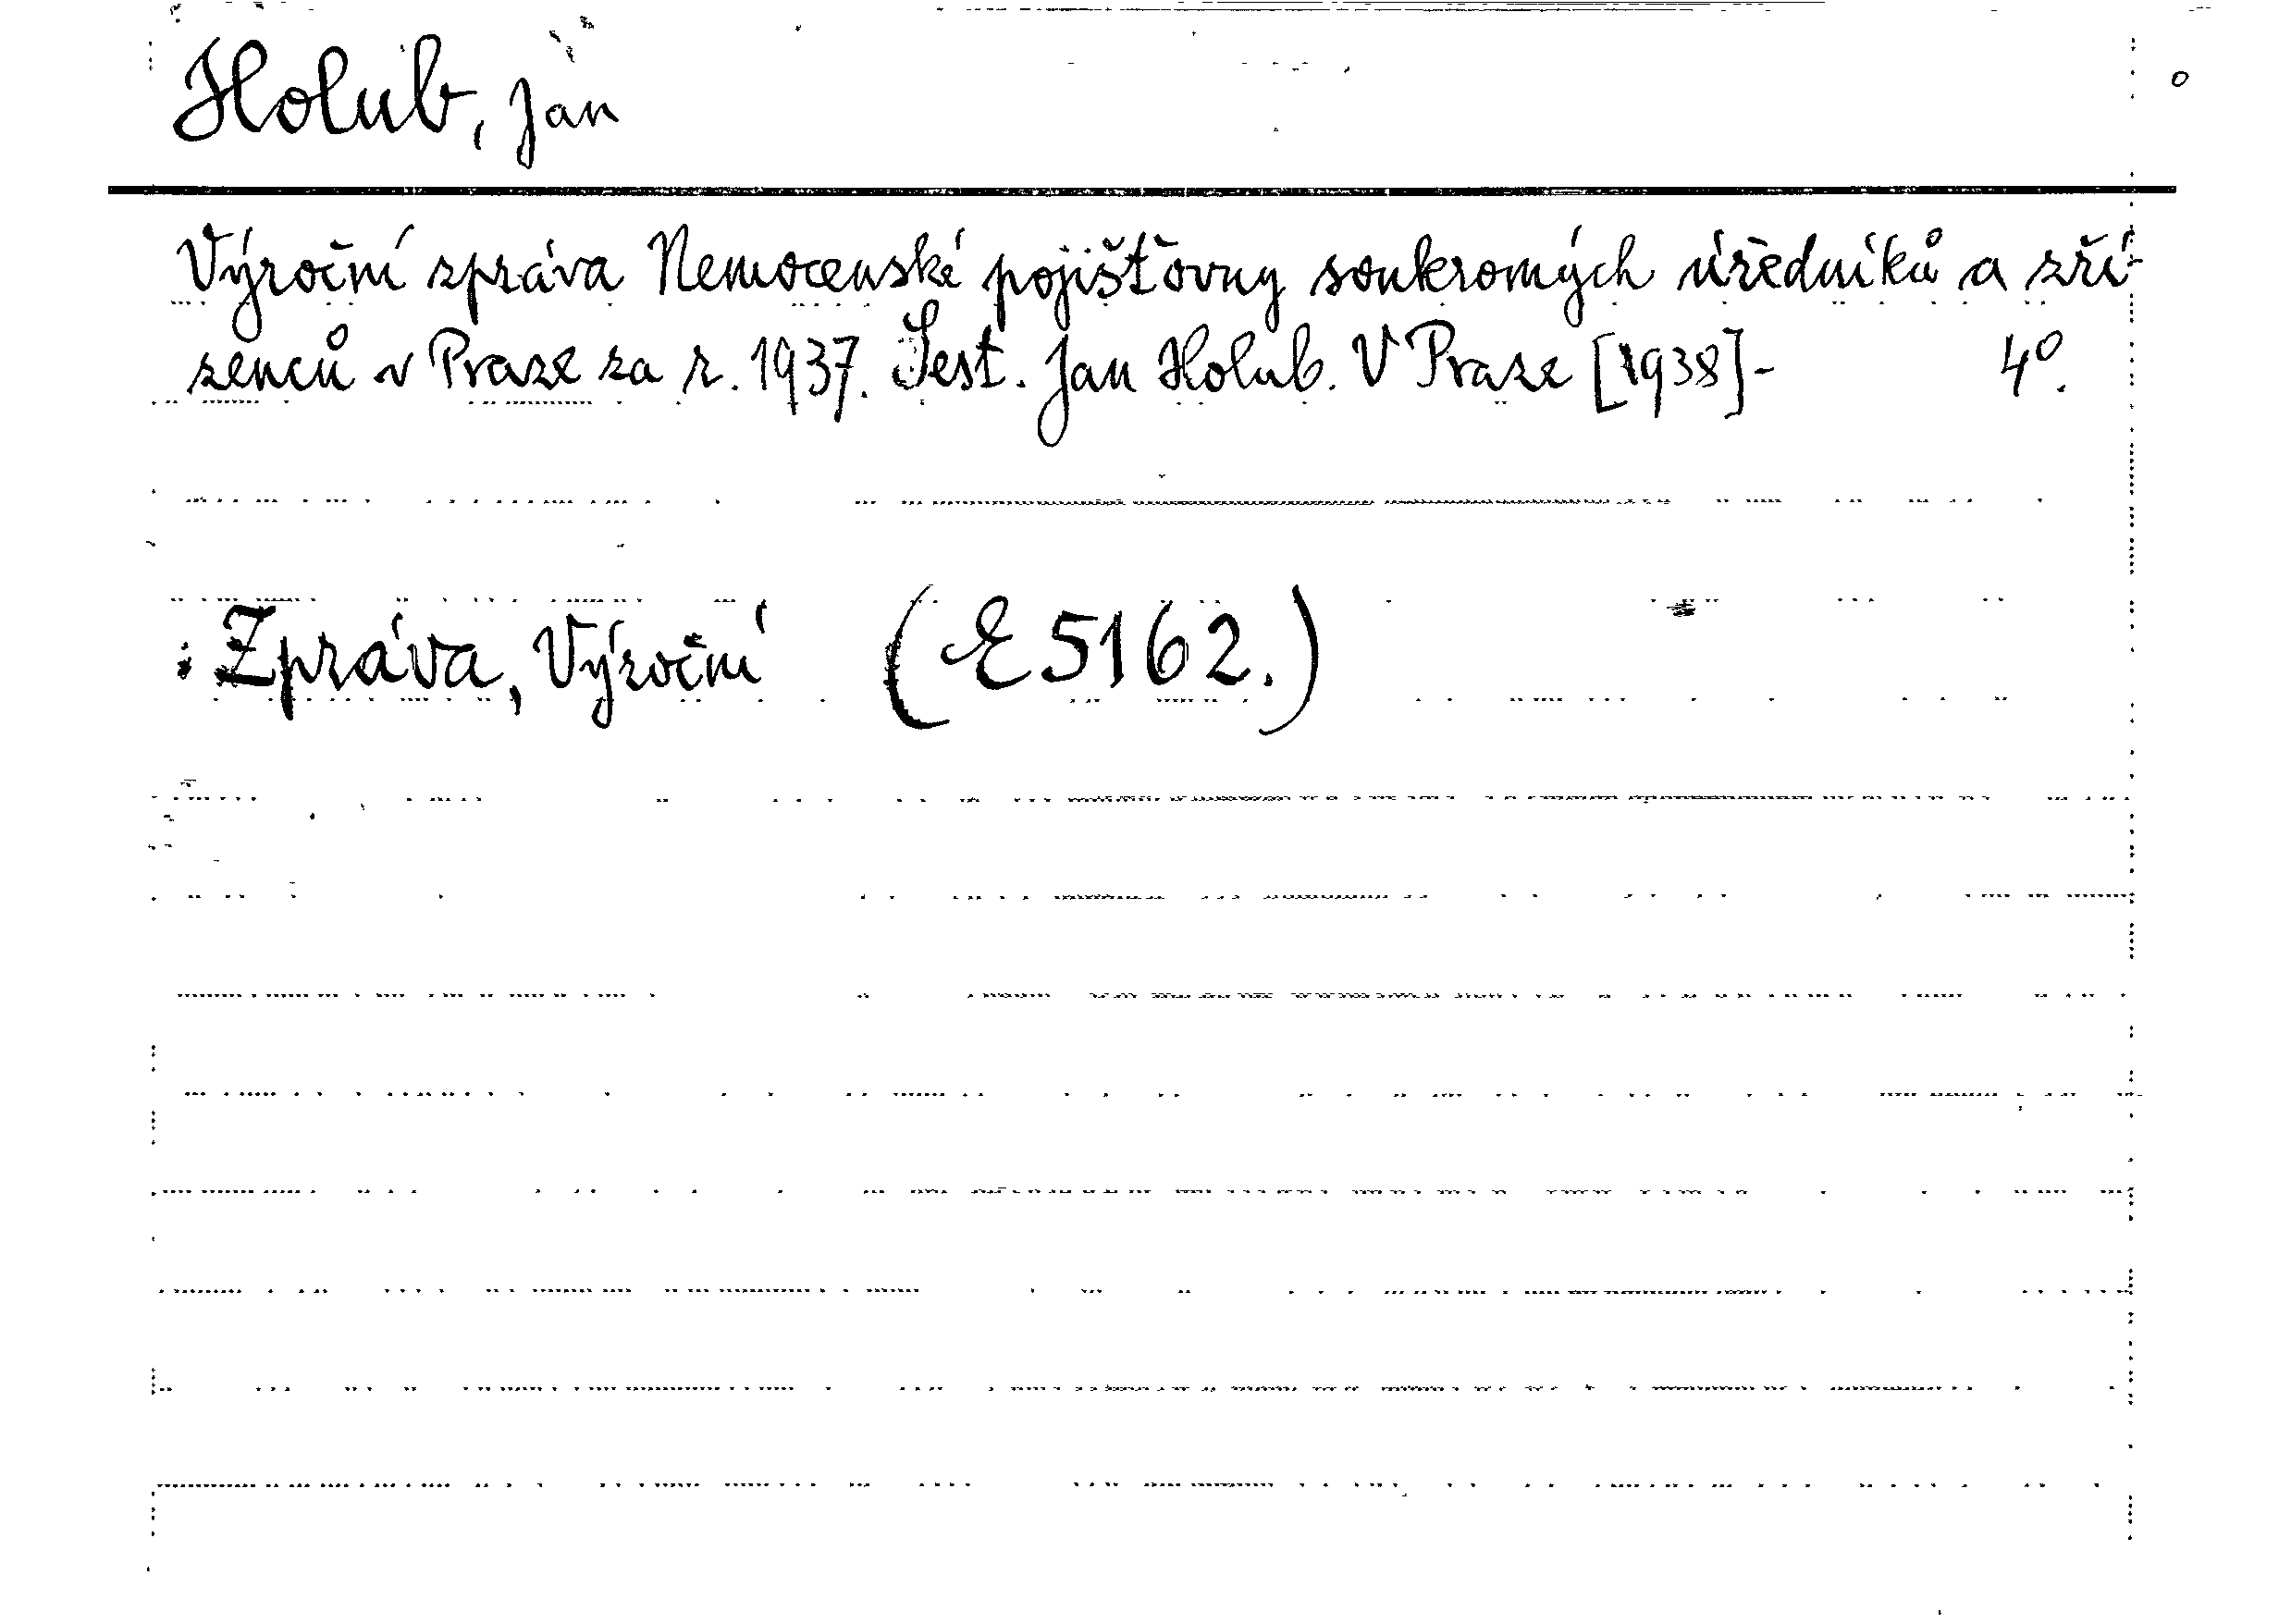 Holub, Jan
Výroční zpráva Nemocenské pojišťovny soukromých úředníků a zří-
zenců v Praze za r. 1937. Sest. Jan Holub. V Praze [1938]- 4°.
: Zpráva, Výroční (E 5162.)